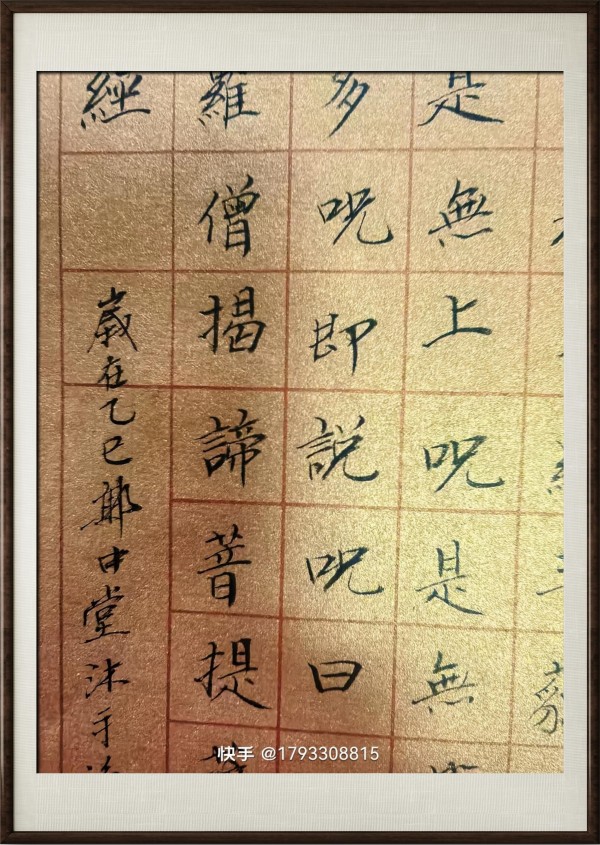 是無上呪是無
多呪即説呪曰
羅僧揭諦菩提
經
歲在乙巳中堂沐手
快手 @1793308815